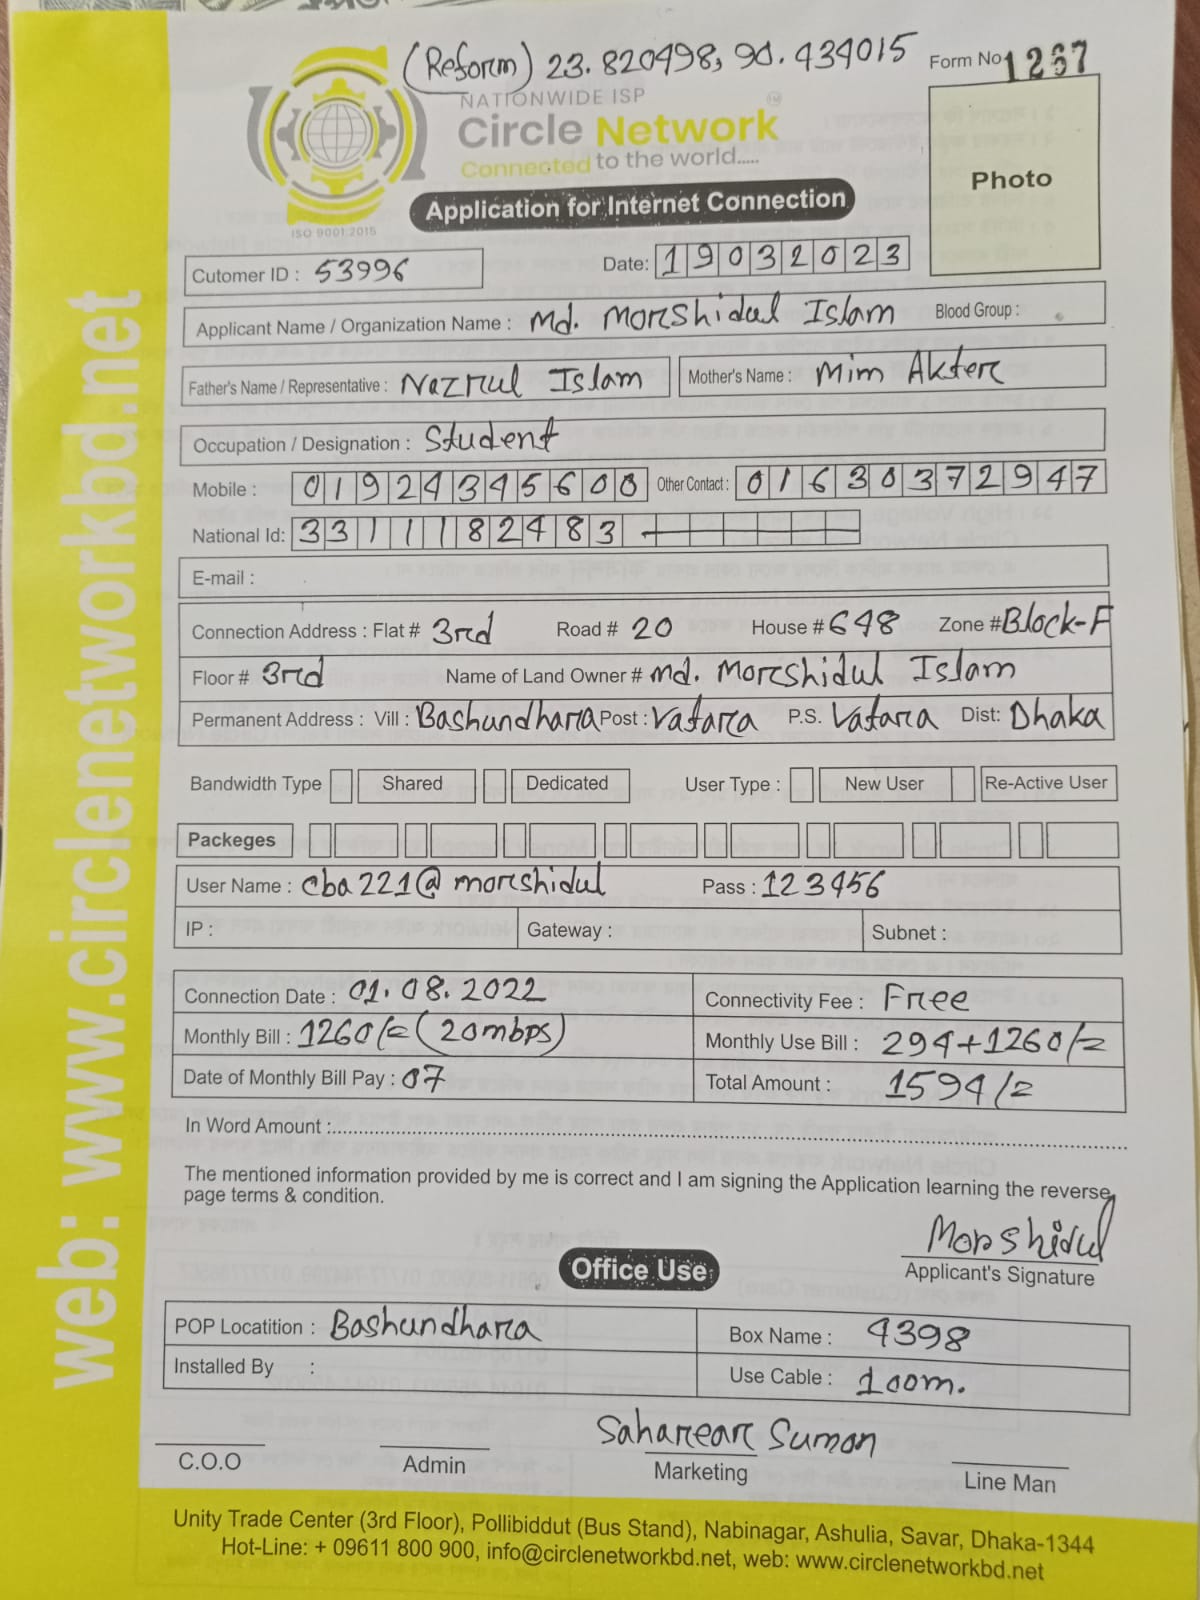 (Reform) 23.820498, 90.434015
Form No 1267
NATIONWIDE ISP
Circle Network
Connected to the world.....
Photo
Application for Internet Connection
ISO 9001:2015
Cutomer ID : 53996
Date: 19032023
Applicant Name / Organization Name : Md. Morshidul Islam Blood Group :
Father's Name / Representative : Nazrul Islam Mother's Name : Mim Akter
Occupation / Designation : Student
Mobile : 01924345600 Other Contact : 01630372947
National Id: 3311182483
E-mail :
Connection Address : Flat # 3rd Road # 20 House # 648 Zone # Block-F
Floor # 3rd Name of Land Owner # Md. Morshidul Islam
Permanent Address : Vill : Bashundhara Post : Vatara P.S. Vatara Dist: Dhaka
Bandwidth Type Shared Dedicated User Type : New User Re-Active User
Packeges
User Name : cba221@morshidul Pass : 123456
IP : Gateway : Subnet :
Connection Date : 01.08.2022 Connectivity Fee : Free
Monthly Bill : 1260/= (20mbps) Monthly Use Bill : 294+1260/=
Date of Monthly Bill Pay : 07 Total Amount : 1594/=
In Word Amount :
The mentioned information provided by me is correct and I am signing the Application learning the reverse
page terms & condition.
Morshidul
Applicant's Signature
Office Use
POP Locatition : Bashundhara Box Name : 4398
Installed By : Use Cable : 100m.
Saharear Sumon
C.O.O Admin Marketing Line Man
Unity Trade Center (3rd Floor), Pollibiddut (Bus Stand), Nabinagar, Ashulia, Savar, Dhaka-1344
Hot-Line: + 09611 800 900, info@circlenetworkbd.net, web: www.circlenetworkbd.net
web: www.circlenetworkbd.net